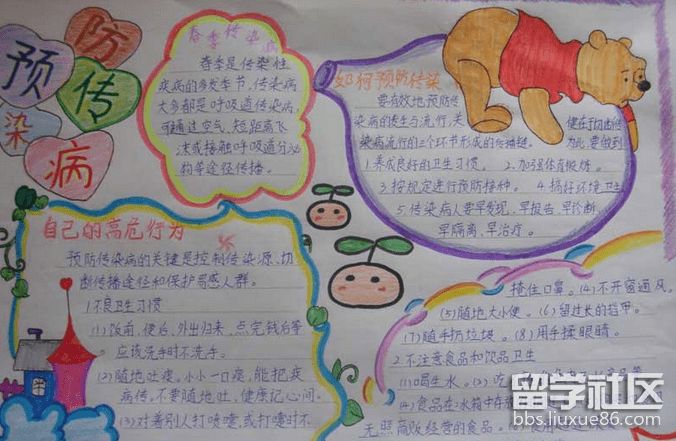 预防传染病
春季传染病
春季是传染性
疾病的多发季节,传染病
大多都是呼吸道传染病,
可通过空气、短距离飞
沫或接触呼吸道分泌
物等途径传播。
如何预防传染
要有效地预防传
染病的发生与流行,关
染病流行的三个环节形成的传播链。
为此,要做到
1.养成良好的卫生习惯。 2.加强体育锻炼。
3.按规定进行预防接种。 4.搞好环境卫生
5.传染病人要早发现,早报告,早诊断
早隔离,早治疗。
自己的高危行为
预防传染病的关键是控制传染源、切
断传播途径和保护易感人群。
1.不良卫生习惯
(1)饭前、便后、外出归来、点完钱后等
应该洗手时不洗手。
(2)随地吐痰。小小一口痰,能把疾
病传,不要随地吐,健康记心间。
(3)对着别人打喷嚏,或打嚏时不
捂住口鼻。(4)不开窗通风。
(5)随地大小便。(6)留过长的指甲。
(7)随手扔垃圾。(8)用手揉眼睛。
2.不注意食品和饮品卫生
(1)喝生水。(2)吃
(4)食品在冰箱中存
无照商贩经营的食品。
留学社区
bbs.liuxue86.com